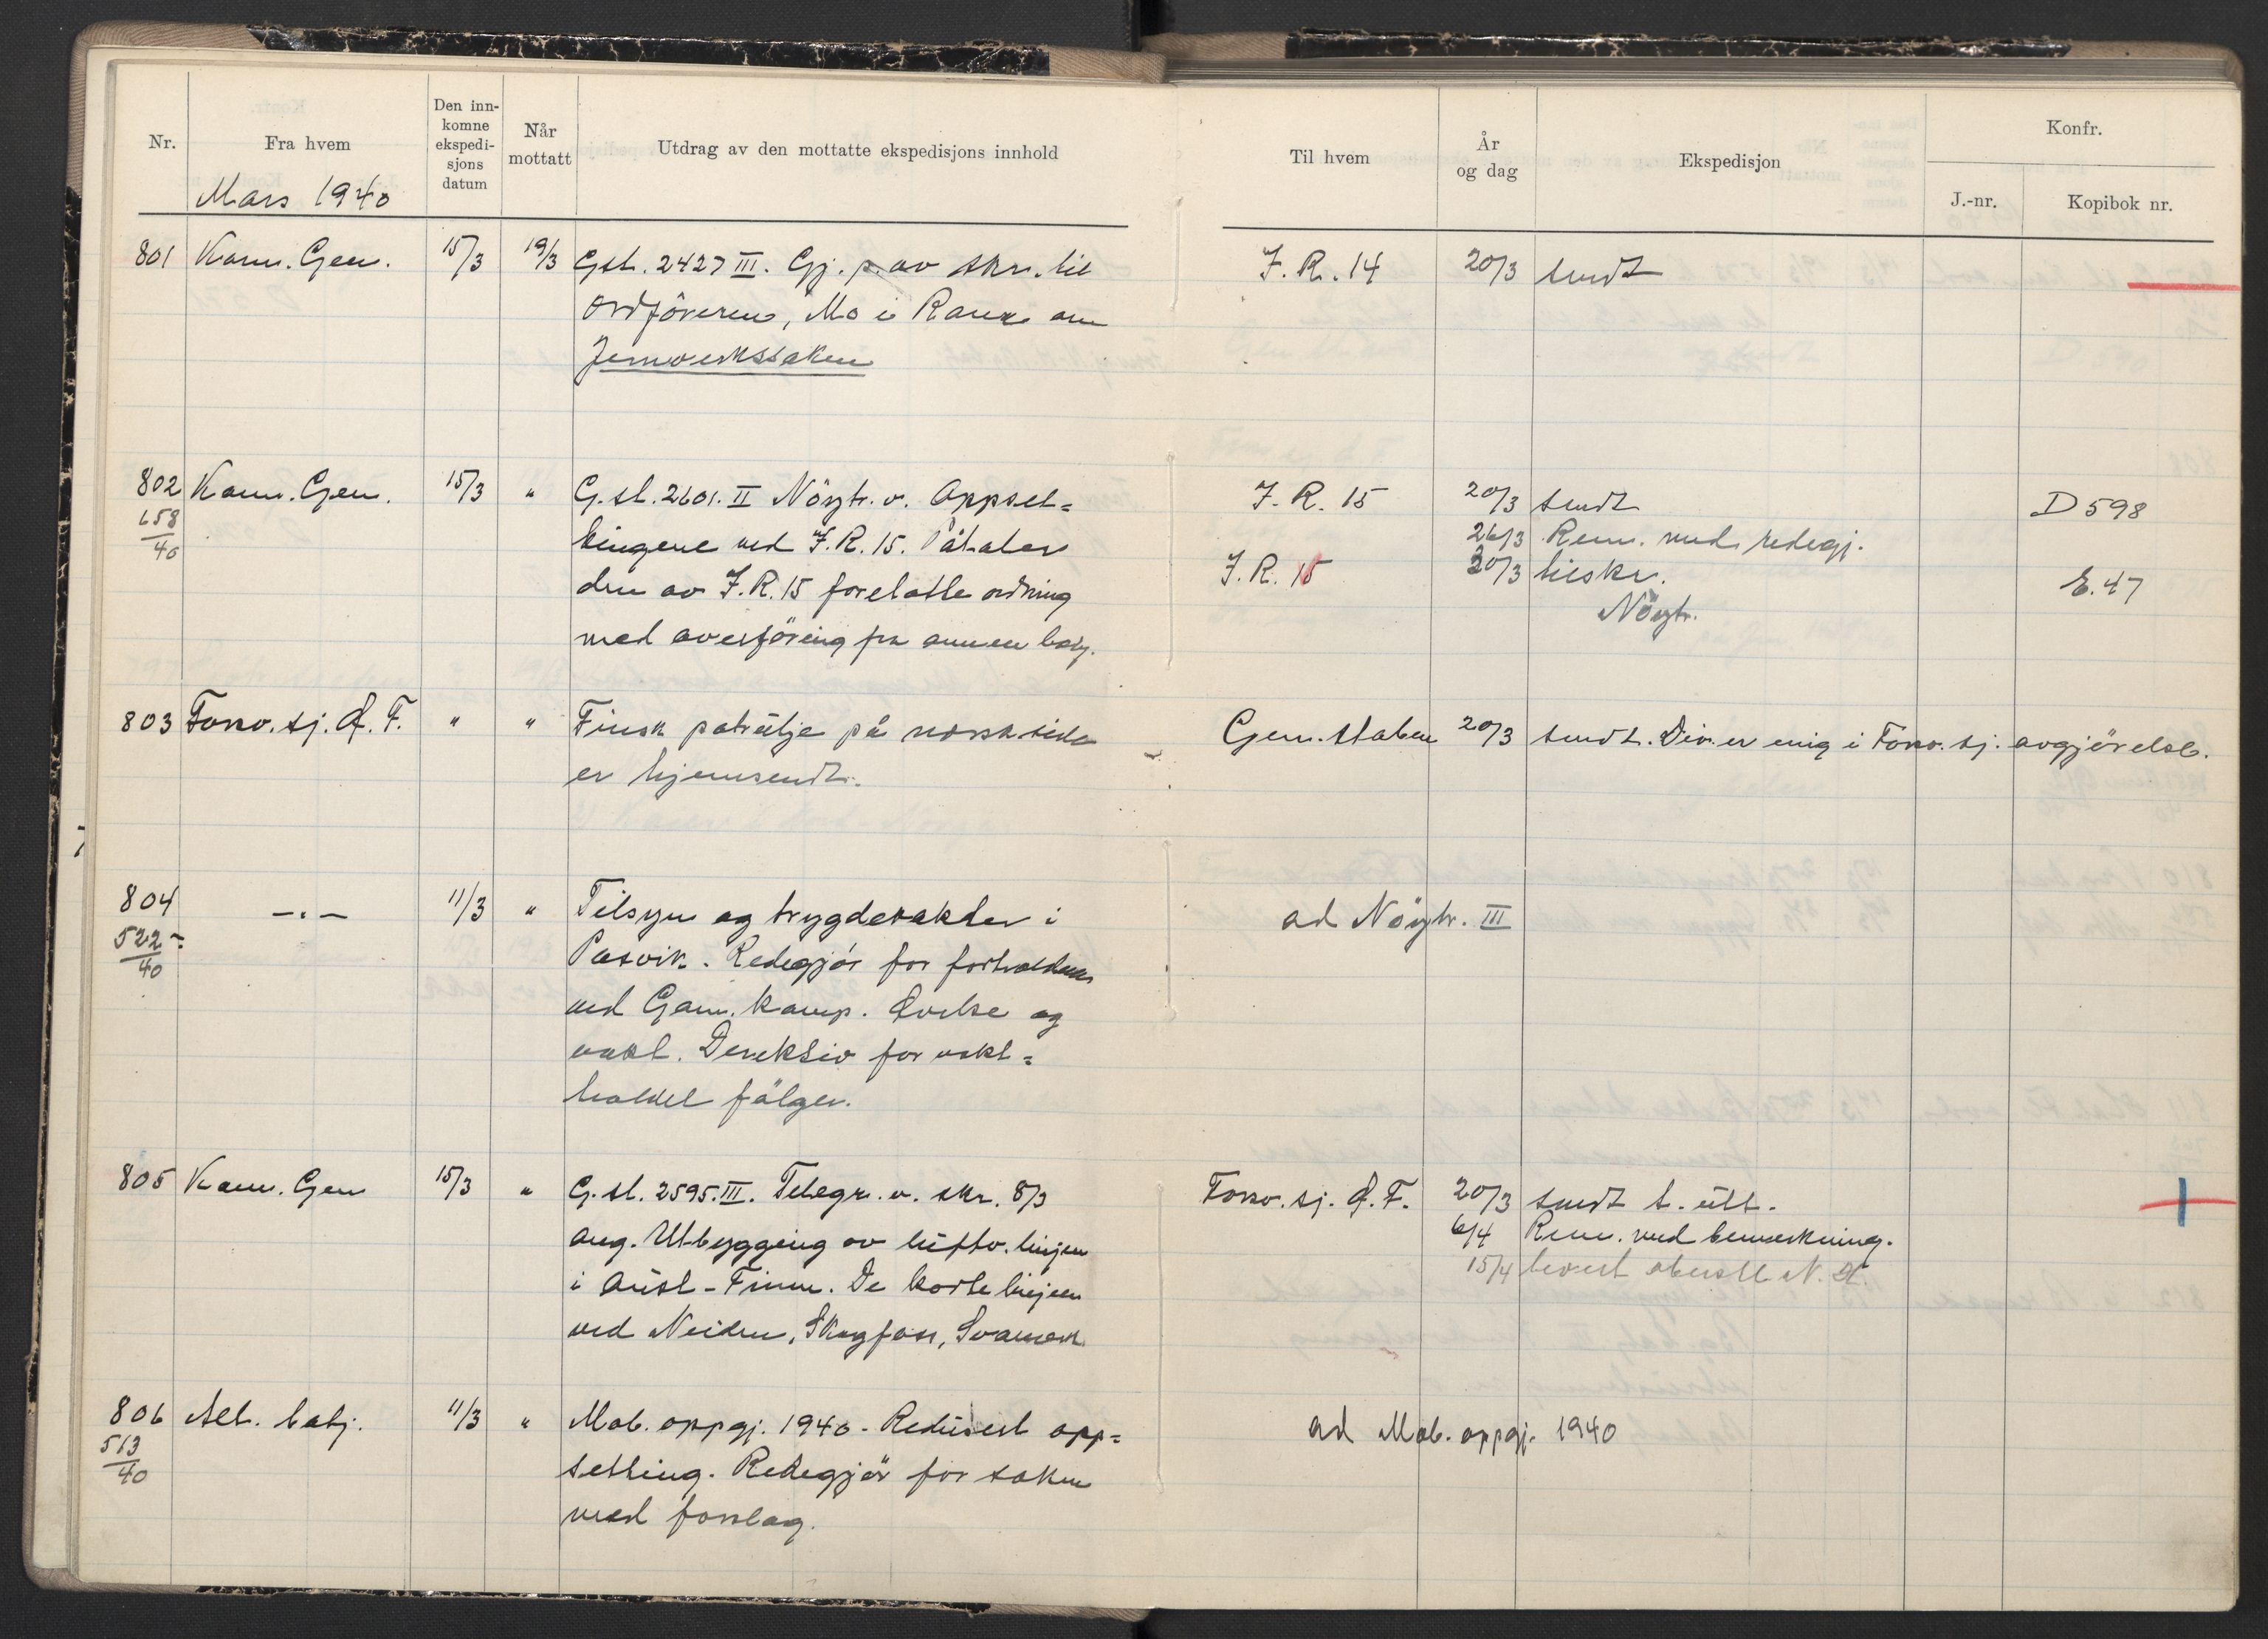 Nr.
Fra hvem
Den inn-
komne
ekspedi-
sjons
datum
Når
mottatt
Utdrag av den mottatte ekspedisjons innhold
Til hvem
År
og dag
Ekspedisjon
Konfr.
J.-nr.
Kopibok nr.
Mars 1940
801 Kom. Gen. 15/3 19/3 Gst. 2427 III. Gj. p. av skr. til
ordföreren, Mo i Rana om
Jernverkssaken
J. R. 14 20/3 sendt
802 Kom. Gen. 15/3 " G. st. 2601. II Nöytr. v. Oppset=
658
40
tingene ved J. R. 15. Påtaler
den av J. R. 15 foretatte ordning
med overföring fra annen
J. R. 15 20/3 sendt D 598
26/3 Rem. med redegj.
J. R. 15 30/3 tilskr. E. 47
Nöytr.
803 Forsv. sj. Ø. F. " " Finsk patrulje på norsk side
er hjemsendt.
Gen. staben 20/3 sendt. Div. er enig i Forsv. sj. avgjörelse.
804 —.— 11/3 " Tilsyn og trygdevakter i
522
40
Pasvik. Redegjör for forholdene
ved Garn. komp. Övelse og
vakt. Direktiv for vakt=
holdet fölger.
ad Nöytr. III
805 Kom. Gen 15/3 " G. st. 2595. III. Telegr. v. skr. 8/3
ang. Utbygging av luftv. linjen
i Aust-Finn. De korte linjene
ved Neiden, Skogfoss, Svanvik
Forsv. sj. Ø. F. 20/3 sendt t. utt.
6/4 Rem. med bemerkning.
15/4 levert oberstl N. H.
806 Alt. batj. 11/3 " Mob. oppgj. 1940. Redusert opp=
513
40
setting. Redegjör for saken
med forslag.
ad Mob. oppgj. 1940